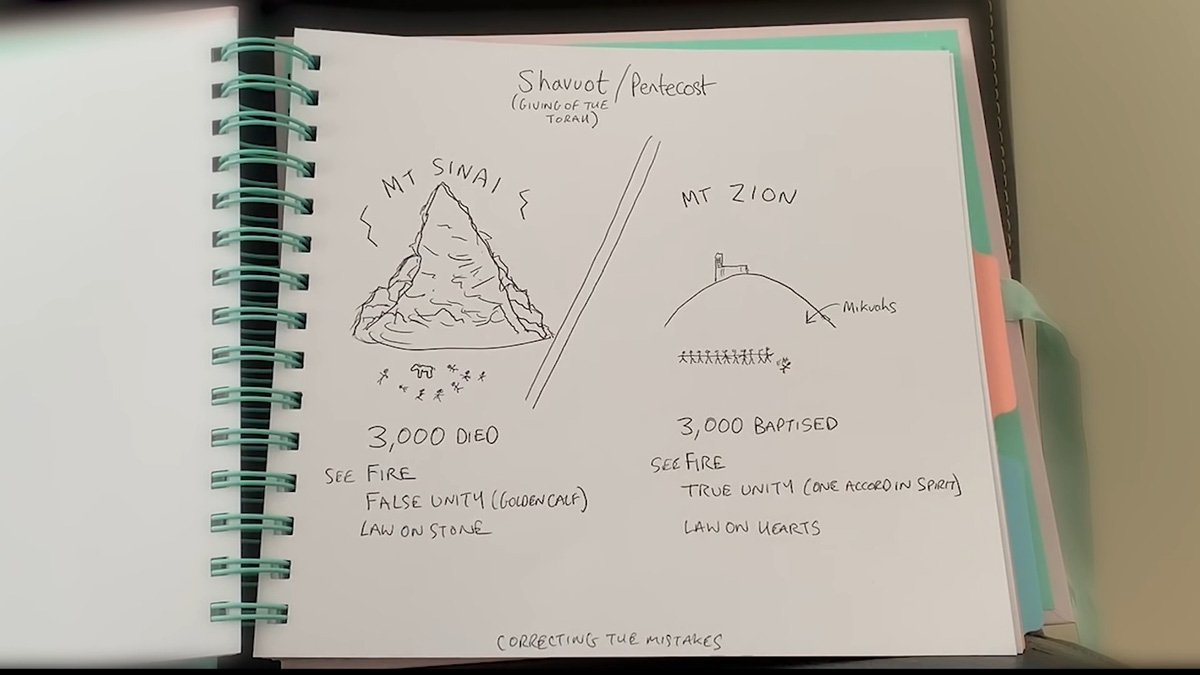 Shavuot / Pentecost
(GIVING OF THE
TORAH)
MT SINAI
3,000 DIED
SEE FIRE
FALSE UNITY (GOLDEN CALF)
LAW ON STONE
MT ZION
Mikvahs
3,000 BAPTISED
SEE FIRE
TRUE UNITY (ONE ACCORD IN SPIRIT)
LAW ON HEARTS
CORRECTING THE MISTAKES